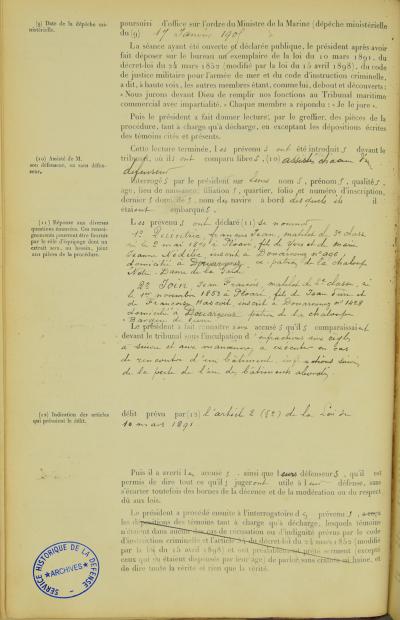 (9) Date de la dépêche ministérielle.
poursuivi d'office sur l'ordre du Ministre de la Marine (dépêche ministérielle
du (9) 17 Janvier 1905
La séance ayant été ouverte et déclarée publique, le président après avoir
fait déposer sur le bureau un exemplaire de la loi du 10 mars 1891, du
décret-loi du 24 mars 1852 (modifié par la loi du 15 avril 1898), du code
de justice militaire pour l'armée de mer et du code d'instruction criminelle,
a dit, à haute voix, les autres membres étant, comme lui, debout et découverts :
« Nous jurons devant Dieu de remplir nos fonctions au Tribunal maritime
commercial avec impartialité. » Chaque membre a répondu : « Je le jure ».
Puis le président a fait donner lecture, par le greffier, des pièces de la
procédure, tant à charge qu'à décharge, en exceptant les dépositions écrites
des témoins cités et présents.
Cette lecture terminée, les prévenus ont été introduits devant le
(10) Assisté de M.
son défenseur, ou sans défenseur.
tribunal, où ils ont comparu libres, (10) assistés chacun d'un
défenseur
Interrogés par le président sur leurs noms, prénoms, qualités,
âge, lieu de naissance, filiation, quartier, folio et numéro d'inscription,
derniers domiciles, nom du navire à bord desquels ils
étaient embarqués.
(11) Réponse aux diverses
questions énoncées. Ces renseignements
pourront être fournis
par le rôle d'équipage dont un
extrait sera, au besoin, joint
aux pièces de la procédure.
Les prévenus ont déclaré (11) se nommer
1° François Jean, matelot de 3e classe
né le 2 mai à Ploaré, fils de Yves et de Marie
Jeanne inscrit à Douarnenez n°
domicilié à Douarnenez, patron de la chaloupe
Notre-Dame de la Garde
2° Join Jean François, matelot de 2e classe, né
le 1er novembre 1852 à Ploaré, fils de Jean Pierre et
de Françoise inscrit à Douarnenez n° 1628
domicilié à Douarnenez patron de la chaloupe
Le président a fait connaître aux accusés qu'ils comparaissaient
devant le tribunal sous l'inculpation d'infractions aux règles
à suivre et aux manœuvres à exécuter en cas
de rencontre d'un bâtiment, infractions suivies
de la perte de l'un des bâtiments abordés.
(12) Indication des articles
qui prévoient le délit.
délit prévu par (12) l'article 2 (§2) de la Loi du
10 mars 1891.
Puis il a averti les accusés, ainsi que leurs défenseurs, qu'il est
permis de dire tout ce qu'ils jugeront utile à leur défense, sans
s'écarter toutefois des bornes de la décence et de la modération ou du respect
dû aux lois.
Le président a procédé ensuite à l'interrogatoire des prévenus, a reçu
les dépositions des témoins tant à charge qu'à décharge, lesquels témoins
n'étaient dans aucun des cas de récusation ou d'indignité prévus par le code
d'instruction criminelle et l'article du décret-loi du 24 mars 1852 (modifié
par la loi du 15 avril 1898) et ont préalablement prêté serment (excepté
ceux qui en étaient dispensés par leur âge) de parler sans crainte ni haine, et
de dire toute la vérité et rien que la vérité.
SERVICE HISTORIQUE DE LA DÉFENSE
ARCHIVES